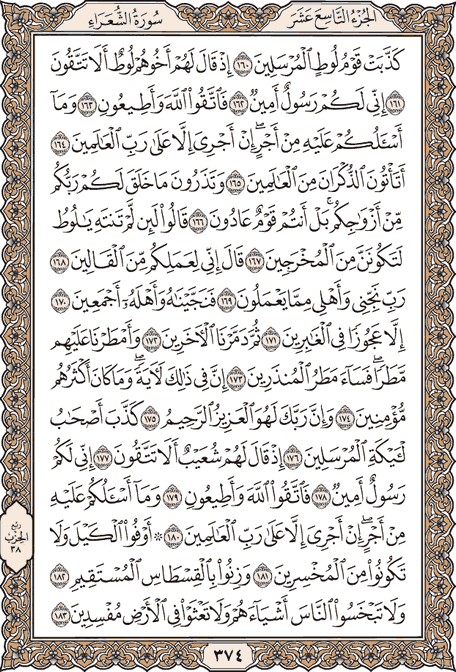 الجزء التاسع عشر
سورة الشعراء
كَذَّبَتْ قَوْمُ لُوطٍ الْمُرْسَلِينَ ١٦٠ إِذْ قَالَ لَهُمْ أَخُوهُمْ لُوطٌ أَلَا تَتَّقُونَ
١٦١ إِنِّي لَكُمْ رَسُولٌ أَمِينٌ ١٦٢ فَاتَّقُوا اللَّهَ وَأَطِيعُونِ ١٦٣ وَمَا
أَسْـَٔلُكُمْ عَلَيْهِ مِنْ أَجْرٍ ۖ إِنْ أَجْرِيَ إِلَّا عَلَىٰ رَبِّ الْعَالَمِينَ ١٦٤
أَتَأْتُونَ الذُّكْرَانَ مِنَ الْعَالَمِينَ ١٦٥ وَتَذَرُونَ مَا خَلَقَ لَكُمْ رَبُّكُم
مِّنْ أَزْوَاجِكُم ۚ بَلْ أَنتُمْ قَوْمٌ عَادُونَ ١٦٦ قَالُوا لَئِن لَّمْ تَنتَهِ يَٰلُوطُ
لَتَكُونَنَّ مِنَ الْمُخْرَجِينَ ١٦٧ قَالَ إِنِّي لِعَمَلِكُم مِّنَ الْقَالِينَ ١٦٨
رَبِّ نَجِّنِي وَأَهْلِي مِمَّا يَعْمَلُونَ ١٦٩ فَنَجَّيْنَٰهُ وَأَهْلَهُۥ أَجْمَعِينَ ١٧٠
إِلَّا عَجُوزًا فِي الْغَٰبِرِينَ ١٧١ ثُمَّ دَمَّرْنَا الْآخَرِينَ ١٧٢ وَأَمْطَرْنَا عَلَيْهِم
مَّطَرًا ۖ فَسَآءَ مَطَرُ الْمُنذَرِينَ ١٧٣ إِنَّ فِي ذَٰلِكَ لَآيَةً ۖ وَمَا كَانَ أَكْثَرُهُم
مُّؤْمِنِينَ ١٧٤ وَإِنَّ رَبَّكَ لَهُوَ الْعَزِيزُ الرَّحِيمُ ١٧٥ كَذَّبَ أَصْحَٰبُ
لْـَٔيْكَةِ الْمُرْسَلِينَ ١٧٦ إِذْ قَالَ لَهُمْ شُعَيْبٌ أَلَا تَتَّقُونَ ١٧٧ إِنِّي لَكُمْ
رَسُولٌ أَمِينٌ ١٧٨ فَاتَّقُوا اللَّهَ وَأَطِيعُونِ ١٧٩ وَمَآ أَسْـَٔلُكُمْ عَلَيْهِ
مِنْ أَجْرٍ ۖ إِنْ أَجْرِيَ إِلَّا عَلَىٰ رَبِّ الْعَالَمِينَ ١٨٠ ۞ أَوْفُوا الْكَيْلَ وَلَا
تَكُونُوا مِنَ الْمُخْسِرِينَ ١٨١ وَزِنُوا بِالْقِسْطَاسِ الْمُسْتَقِيمِ ١٨٢
وَلَا تَبْخَسُوا النَّاسَ أَشْيَآءَهُمْ وَلَا تَعْثَوْا فِي الْأَرْضِ مُفْسِدِينَ ١٨٣
ربع
الحزب
٣٨
٣٧٤